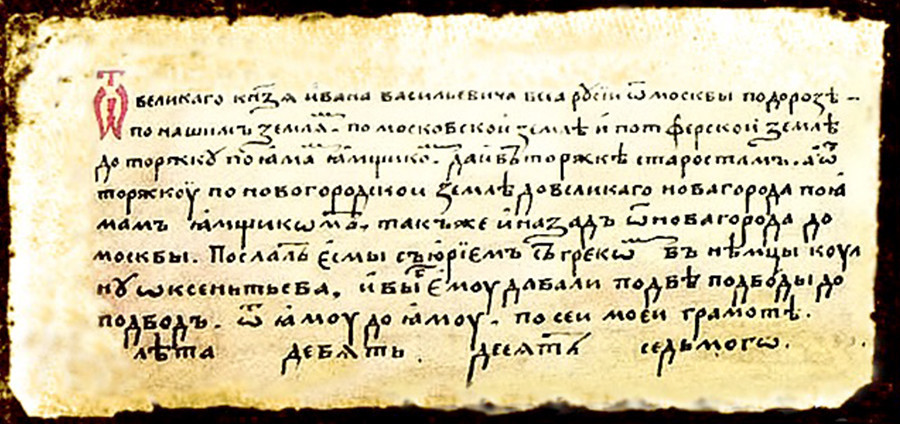 Ѿ великаго кнѧзѧ ивана васильевича всеа рꙋсїи ѿ москвы подорозѣ
по нашимъ землѧм. по московской землѣ и по тферской землѣ
до торжкꙋ по ꙗмам ꙗмщиком. да и въ торжкѣ старостамъ. а ѿ
торжкоу по новогородской землѣ до великаго новагорода по ꙗ
мамъ ꙗмщикѡмъ. такъже и назадъ ѿ новагорода до
москвы. Послалъ есмы съ юрїемъ съ грекѡм въ нѣмцы коул
нꙋ ѡксентьева. и вы емоу давали по двѣ подводы до
подводъ. ѿ ꙗмоу до ꙗмоу. по сеи моеи грамотѣ.
лѣта девѧть десѧтъ седьмогѡ.